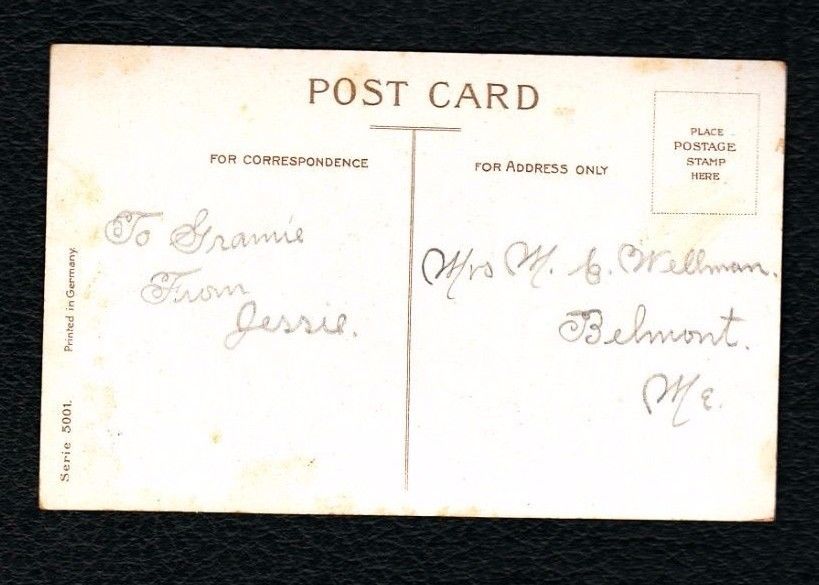 POST CARD
FOR CORRESPONDENCE
FOR ADDRESS ONLY
PLACE
POSTAGE
STAMP
HERE
To Gramie
From
Jessie.
Mrs M. E. Wellman.
Belmont.
Me.
Printed in Germany.
Serie 5001.